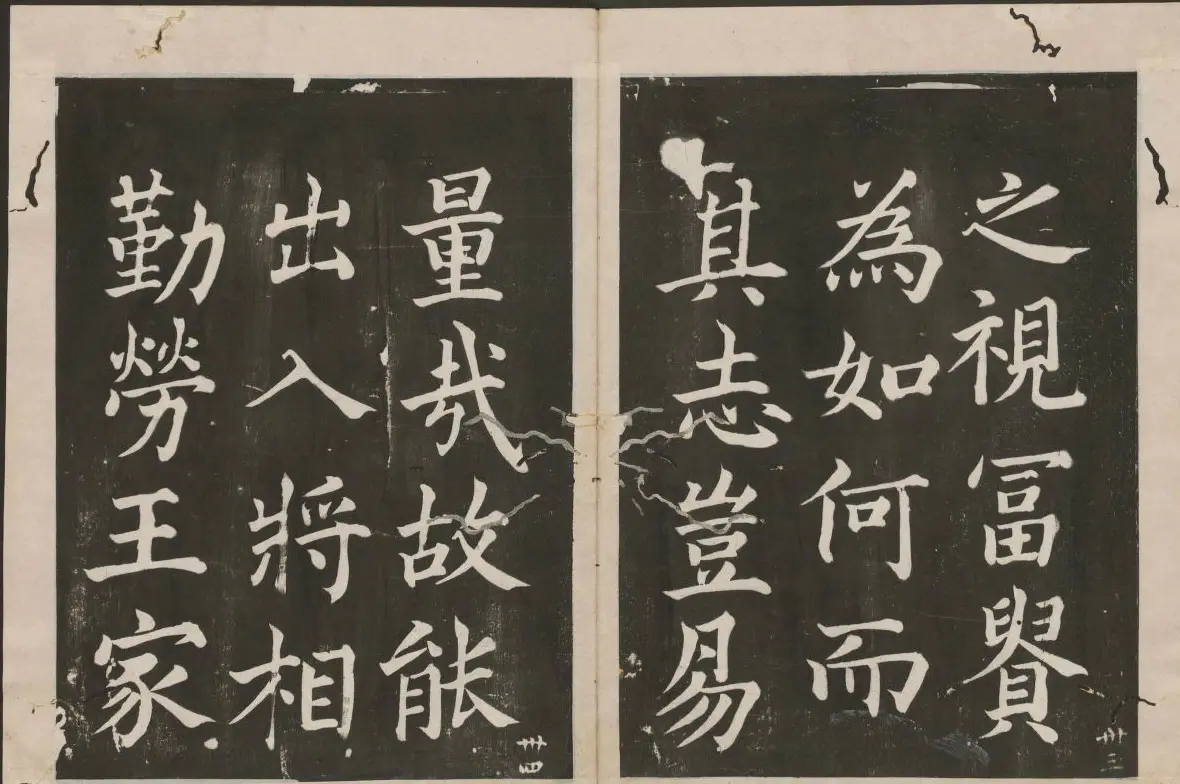 之視冨貴
為如何而
其志豈易
卅三
量哉故能
出入將相
勤勞王家
卅四